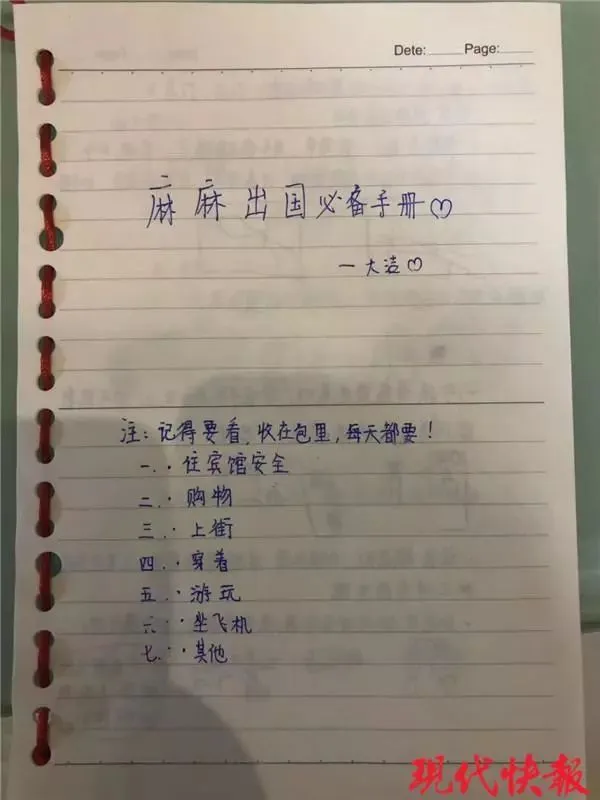 Dete: Page:
麻麻出国必备手册♡
一大洁♡
注:记得要看,收在包里,每天都要!
一.·住宾馆安全
二.·购物
三.·上街
四.·穿着
五.·游玩
六.·坐飞机
七.·其他
现代快报